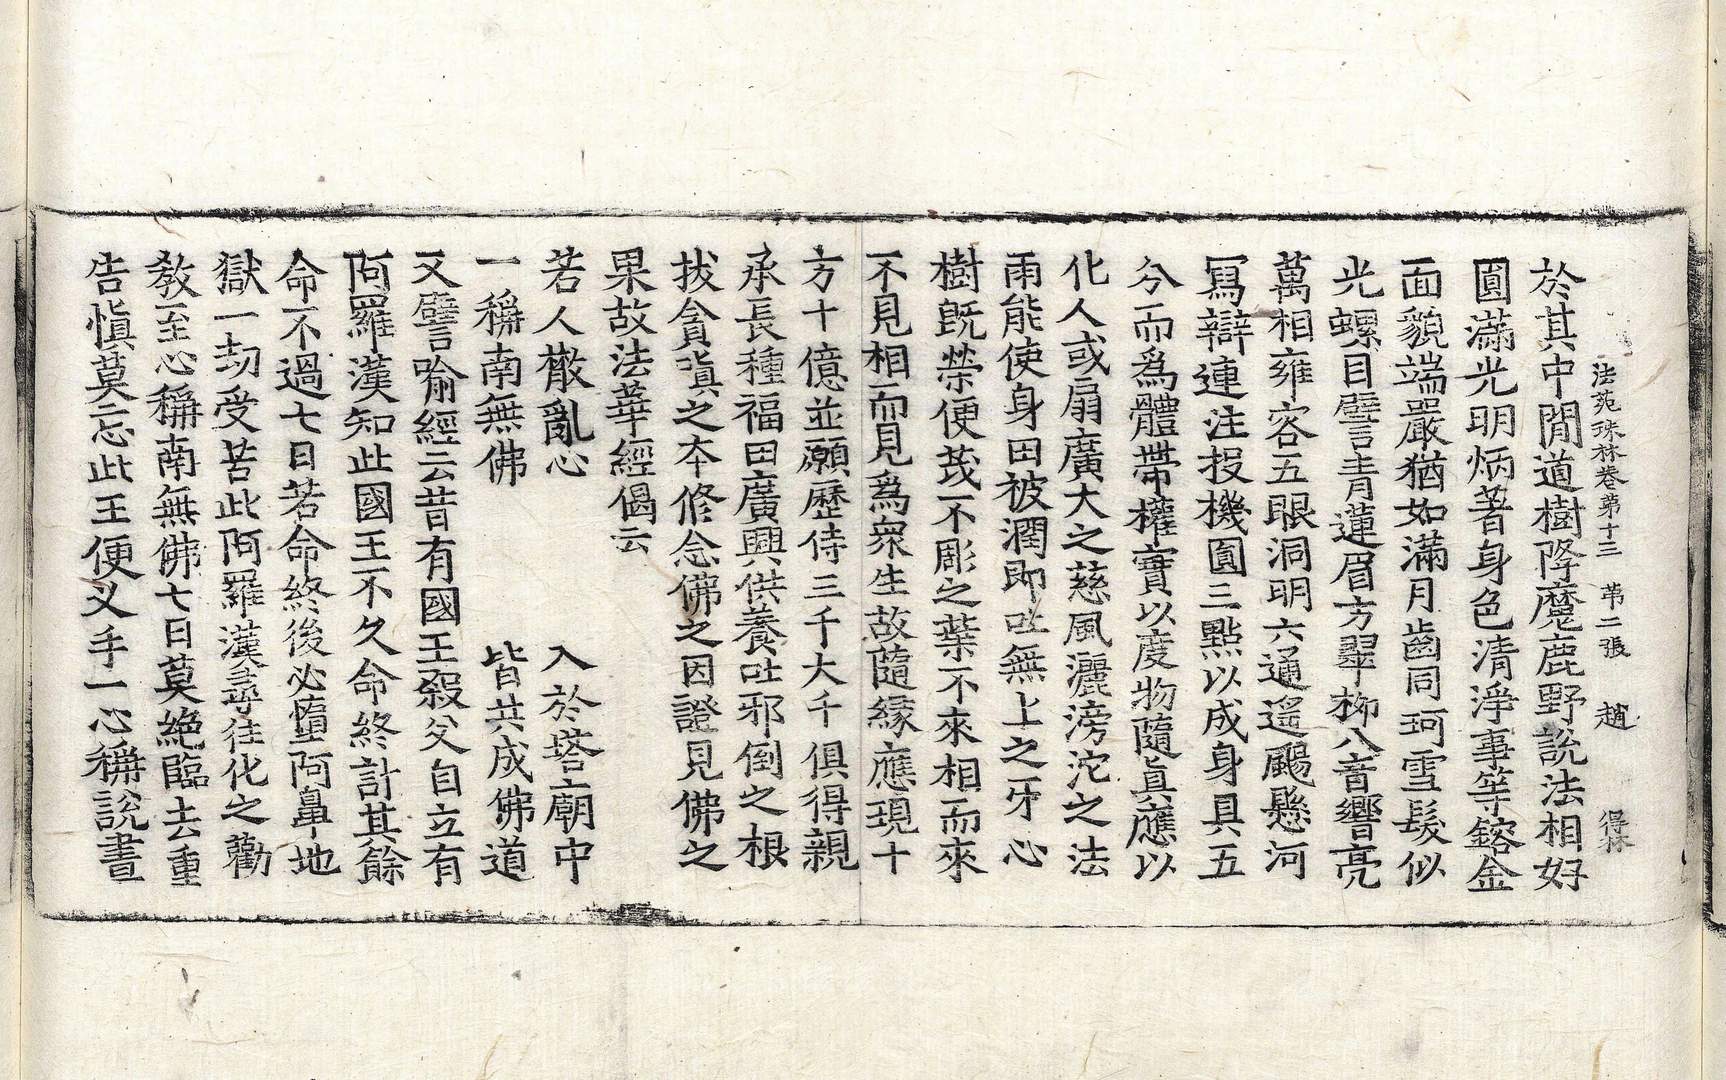 法苑珠林卷第十三 苐二張 趙 得林
於其中閒道樹降魔鹿野說法相好
圓滿光明炳著身色清淨事等鎔金
面貌端嚴猶如滿月齒同珂雪髮似
光螺目譬青蓮眉方翠柳八音響亮
萬相雍容五眼洞明六通遙颺懸河
寫辯連注投機圓三點以成身具五
分而爲體帶權實以度物隨眞應以
化人或扇廣大之慈風灑滂沱之法
雨能使身田被潤即吐無上之牙心
樹既榮便茂不彫之葉不來相而來
不見相而見爲衆生故隨緣應現十
方十億並願歷侍三千大千俱得親
承長種福田廣興供養吐邪倒之根
拔貪瞋之本修念佛之因證見佛之
果故法華經偈云
若人散亂心 入於塔廟中
一稱南無佛 皆共成佛道
又譬喻經云昔有國王殺父自立有
阿羅漢知此國王不久命終計其餘
命不過七日若命終後必墮阿鼻地
獄一劫受苦此阿羅漢尋往化之勸
教至心稱南無佛七日莫絶臨去重
告慎莫忘此王便叉手一心稱說晝